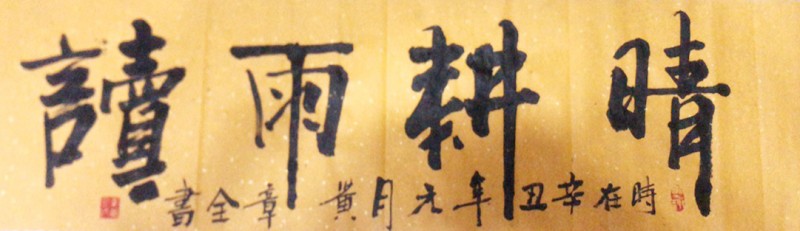 晴耕雨讀
時在辛丑年元月黃章全書